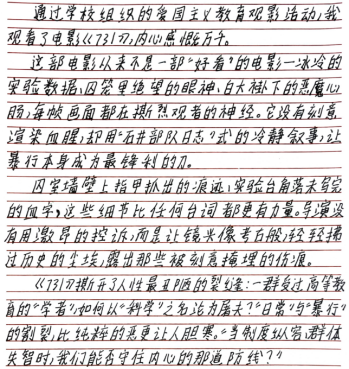 通过学校组织的爱国主义教育观影活动，我
观看了电影《731》，内心感慨万千。
这部电影从来不是一部“好看”的电影—冰冷的
实验数据，囚笼里绝望的眼神、白大褂下的恶魔心
肠，每帧画面都在撕裂观者的神经。它没有刻意
渲染血腥，却用“石井部队日志”式的冷静叙事，让
暴行本身成为最锋利的刀。
囚室墙壁上指甲抓出的痕迹、实验台角落未写完
的血字，这些细节比任何台词都更有力量。导演没
有用激昂的控诉，而是让镜头像考古般，轻轻拂
过历史的尘埃，露出那些被刻意掩埋的伤痕。
《731》撕开了人性最丑陋的裂缝：一群受过高等教
育的“学者”，如何以“科学”之名沦为屠夫？“日常”与“暴行”
的割裂，比纯粹的恶更让人胆寒。“当制度纵容群体
失智时，我们能否守住内心的那道防线？”